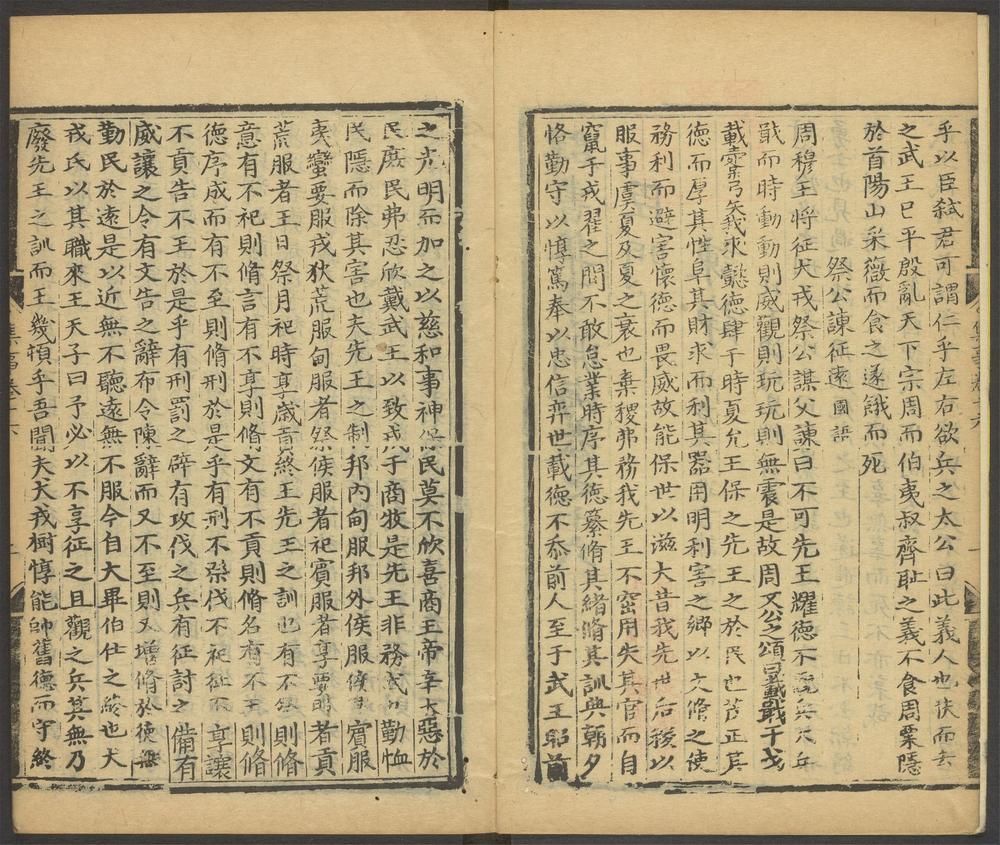 乎以臣弑君可謂仁乎左右欲兵之太公曰此義人也扶而去
之武王已平殷亂天下宗周而伯夷叔齊耻之義不食周粟隱
於首陽山采薇而食之遂餓而死
祭公諫征遠 國語
周穆王將征犬戎祭公謀父諫曰不可先王耀德不觀兵夫兵
戢而時動動則威觀則玩玩則無震是故周文公之頌曰載戢干戈
載櫜弓矢我求懿德肆于時夏允王保之先王之於民也茂正其
德而厚其性阜其財求而利其器用明利害之鄉以文脩之使
務利而避害懷德而畏威故能保世以滋大昔我先世后稷以
服事虞夏及夏之衰也棄稷弗務我先王不窋用失其官而自
竄于戎翟之間不敢怠業時序其德纂脩其緒脩其訓典朝夕
恪勤守以惇篤奉以忠信弈世載德不忝前人至于武王昭前
之光明而加之以慈和事神保民莫不欣喜商王帝辛大惡於
民庶民弗忍欣戴武王以致戎于商牧是先王非務武也勤恤
民隱而除其害也夫先王之制邦內甸服邦外侯服侯衛賓服
夷蠻要服戎狄荒服甸服者祭侯服者祀賓服者享要服者貢
荒服者王日祭月祀時享歲貢終王先王之訓也有不祭則脩
意有不祀則脩言有不享則脩文有不貢則脩名有不王則脩
德序成而有不至則脩刑於是乎有刑不祭伐不祀征不享讓
不貢告不王於是乎有刑罰之辟有攻伐之兵有征討之備有
威讓之令有文告之辭布令陳辭而又不至則又增脩於德無
勤民於遠是以近無不聽遠無不服今自大畢伯仕之終也犬
戎氏以其職來王天子曰予必以不享征之且觀之兵其無乃
廢先王之訓而王幾頓乎吾聞夫犬戎樹惇能帥舊德而守終